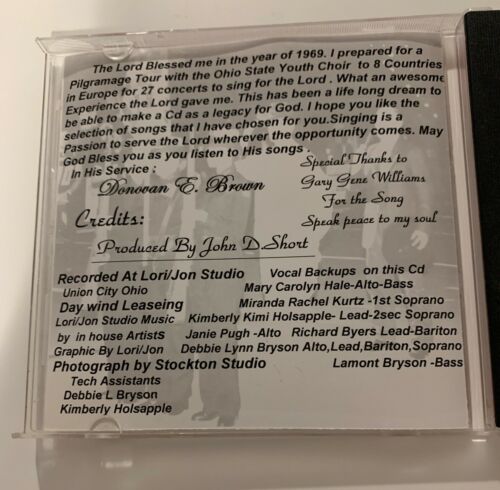 The Lord Blessed me in the year of 1969. I prepared for a
Pilgramage Tour with the Ohio State Youth Choir to 8 Countries
in Europe for 27 concerts to sing for the Lord . What an awesome
Experience the Lord gave me. This has been a life long dream to
be able to make a Cd as a legacy for God. I hope you like the
selection of songs that I have chosen for you.Singing is a
Passion to serve the Lord wherever the opportunity comes. May
God Bless you as you listen to His songs .
In His Service :
Donovan E. Brown
Special Thanks to
Gary Gene Williams
For the Song
Speak peace to my soul
Credits:
Produced By John D.Short
Recorded At Lori/Jon Studio
Union City Ohio
Day wind Leaseing
Lori/Jon Studio Music
by in house Artists
Graphic By Lori/Jon
Photograph by Stockton Studio
Tech Assistants
Debbie L Bryson
Kimberly Holsapple
Vocal Backups on this Cd
Mary Carolyn Hale-Alto-Bass
Miranda Rachel Kurtz -1st Soprano
Kimberly Kimi Holsapple- Lead-2sec Soprano
Janie Pugh -Alto Richard Byers Lead-Bariton
Debbie Lynn Bryson Alto,Lead,Bariton,Soprano
Lamont Bryson -Bass